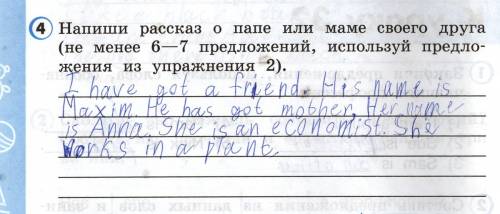 4 Напиши рассказ о папе или маме своего друга
(не менее 6—7 предложений, используй предло-
жения из упражнения 2).
I have got a friend. His name is
Maxim. He has got mother. Her name
is Anna. She is an economist. She
works in a plant.